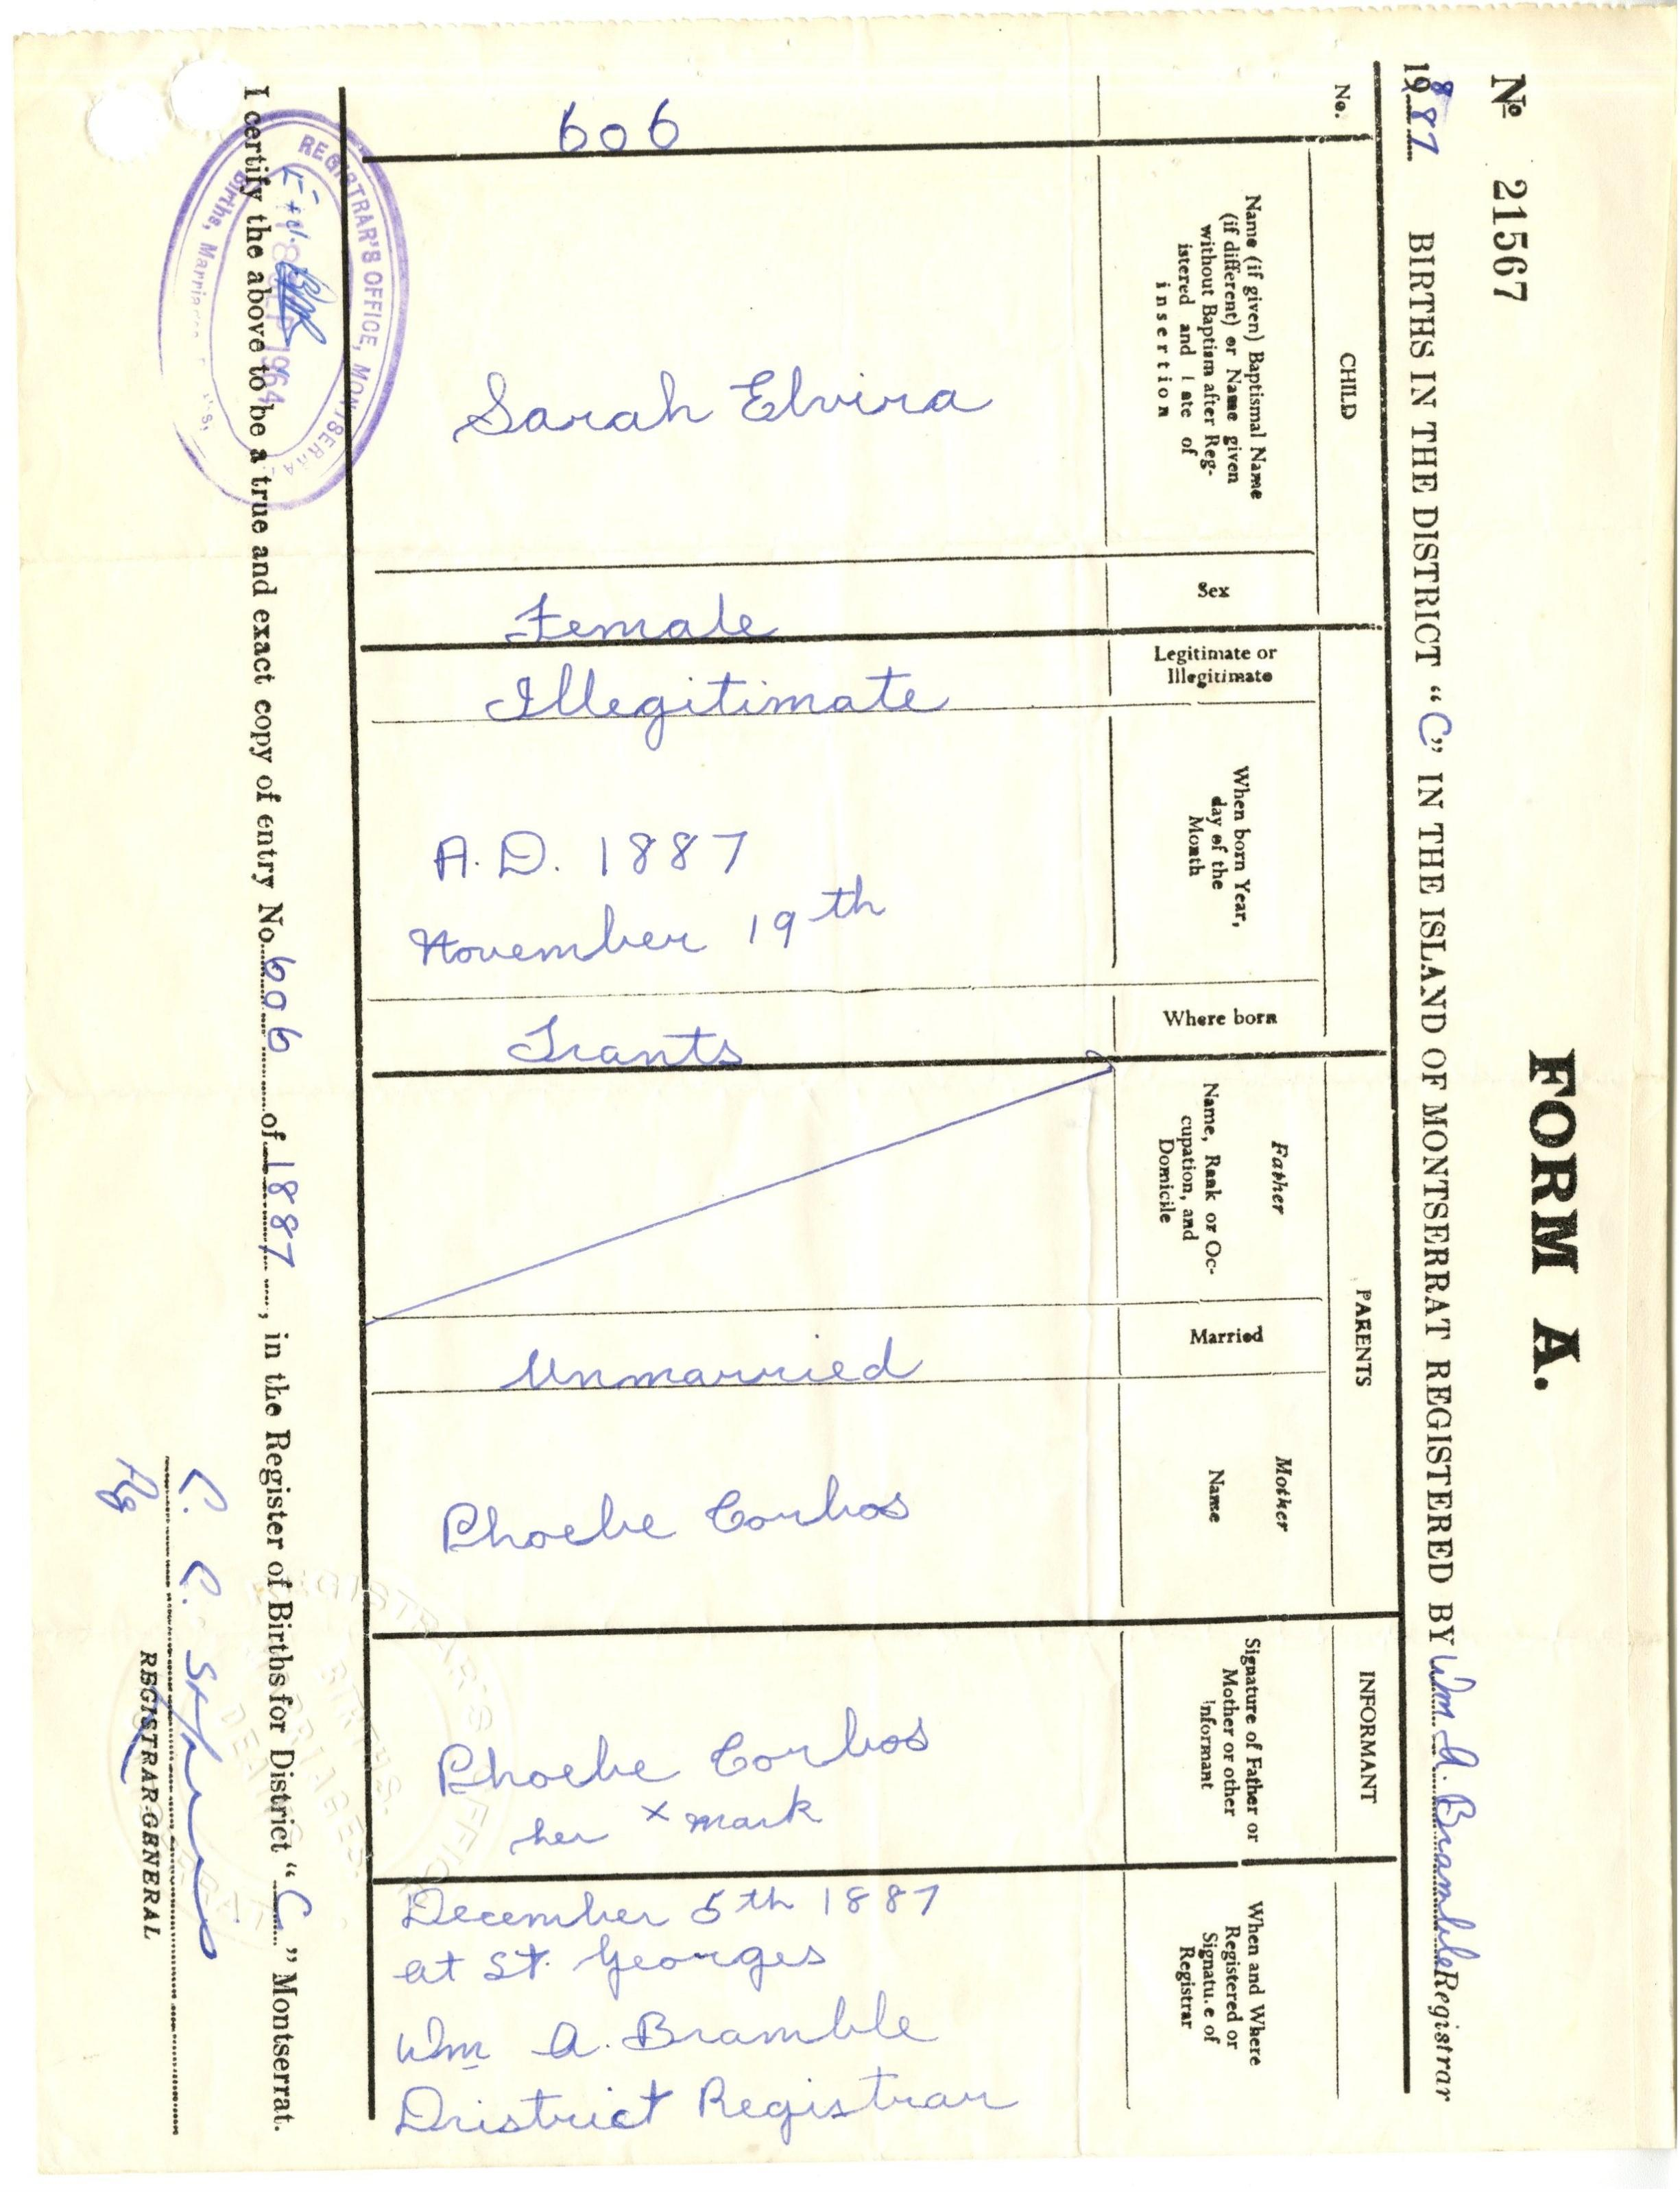 FORM A.
Nº 21567
1887 BIRTHS IN THE DISTRICT "C" IN THE ISLAND OF MONTSERRAT REGISTERED BY Wm A. Bramble Registrar
No.
CHILD
PARENTS
INFORMANT
Name (if given) Baptismal Name
(if different) or Name given
without Baptism after Reg-
istered and Date of
insertion
Sex
Legitimate or
Illegitimate
When born Year,
day of the
Month
Where born
Father
Name, Rank or Oc-
cupation, and
Domicile
Married
Mother
Name
Signature of Father or
Mother or other
Informant
When and Where
Registered or
Signature of
Registrar
606
Sarah Elvira
Female
Illegitimate
A.D. 1887
November 19th
Trants
Unmarried
Phoebe Corbos
Phoebe Corbos
her x mark
December 5th 1887
at St. Georges
Wm A. Bramble
Dristrict Registrar
I certify the above to be a true and exact copy of entry No. 606 of 1887, in the Register of Births for District "C" Montserrat.
REGISTRAR'S OFFICE, MONTSERRAT
1964
Births, Marriages
REGISTRAR'S OFFICE
BIRTHS.
MARRIAGES.
REGISTRAR-GENERAL